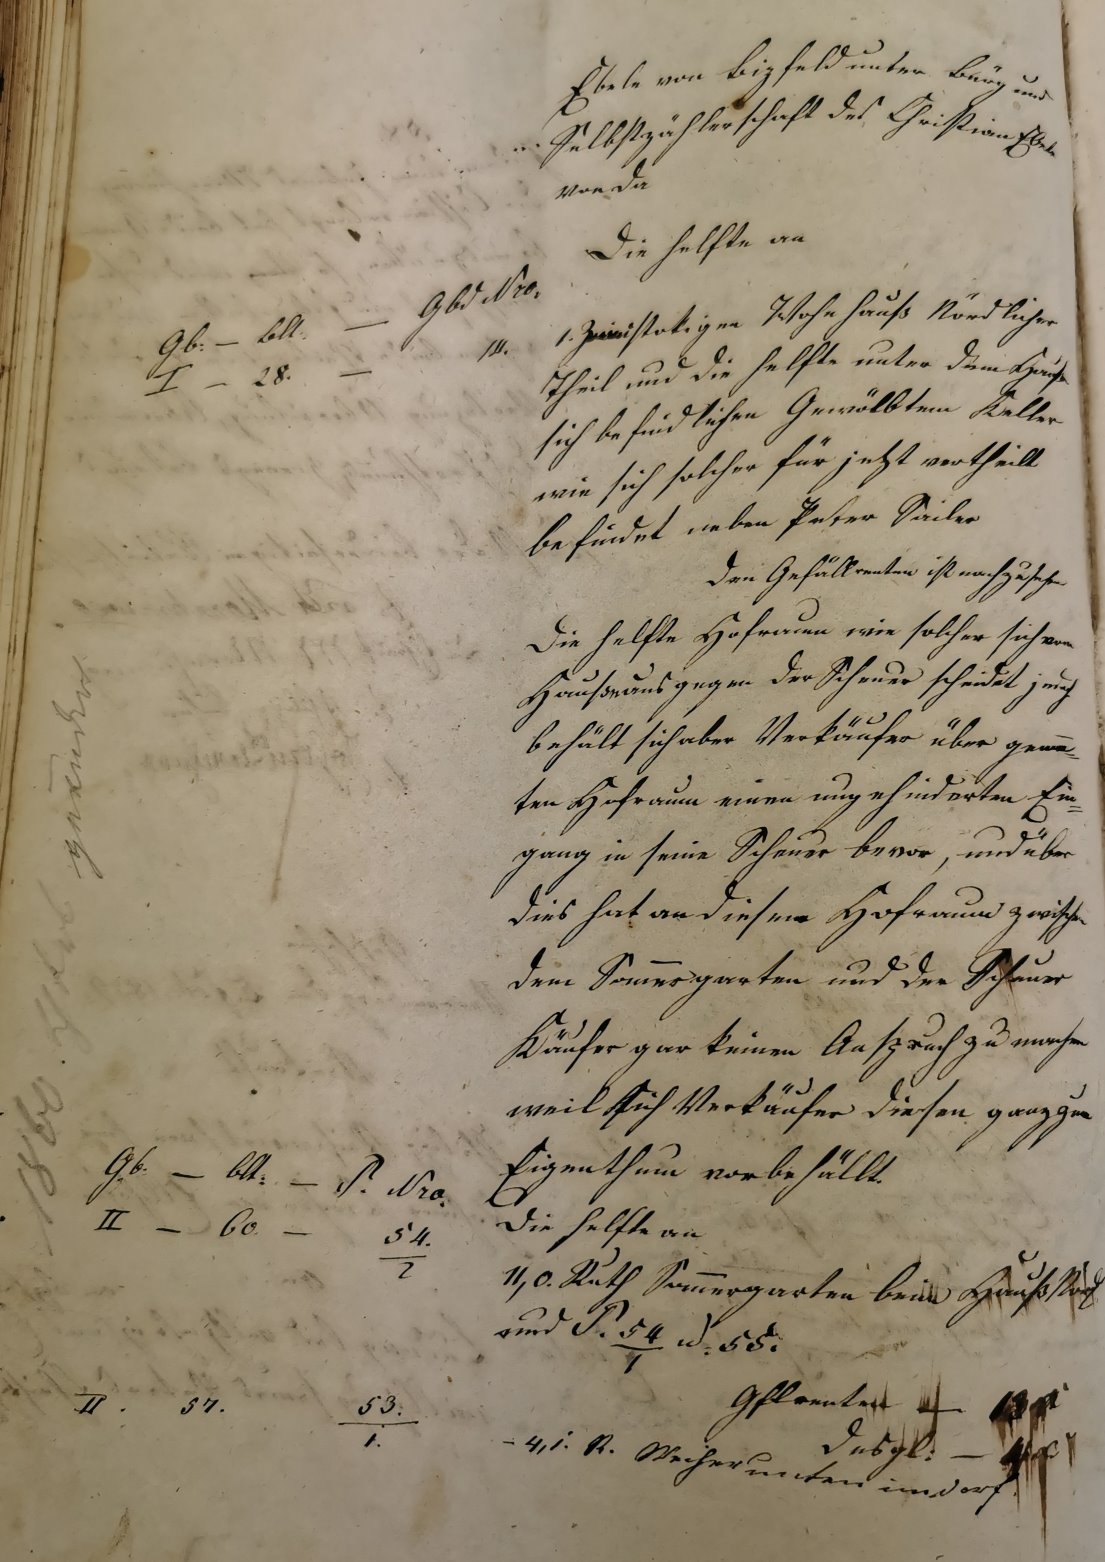 Ebele von Bizfeld unter Bürg und
Selbstzählerschaft des Christian Ebele
von da
Die helfte an
Gb. – blt. — Gbd Nro.
I – 28. — 14.
1. Zweistokigen Wohnhauß Nördlicher
Theil und die helfte unter dem Hauße
sich befindlichen Gewölbtem Keller
wie sich solcher für jetzt vertheilt
befindet neben Peter Sailer
Den Gefällrenten ist nachzusehen
Die helfte Hofraum wie solcher sich vom
Hauße aus gegen der Scheuer scheidet
behält sich aber Verkäufer über genann-
ten Hofraum einen ungehinderten Ein=
gang in seine Scheuer bevor, und über
dies hat an diesem Hofraum zwischen
dem Sommergarten und der Scheuer
Käufer gar keinen Anspruch zu machen
weil sich Verkäufer diesen ganz zum
Eigenthum vorbehällt.
Gb. – blt: – P. Nro.
II – 60. – 54./2
Die helfte an
11,0. Ruth Sommergarten beim Hauß
und P. 54/1 u. 55.
Gfllrenten —
II. 57. 53./1.
Desgl: —
– 4,1. R. Weiher unten im dorf.
1860.